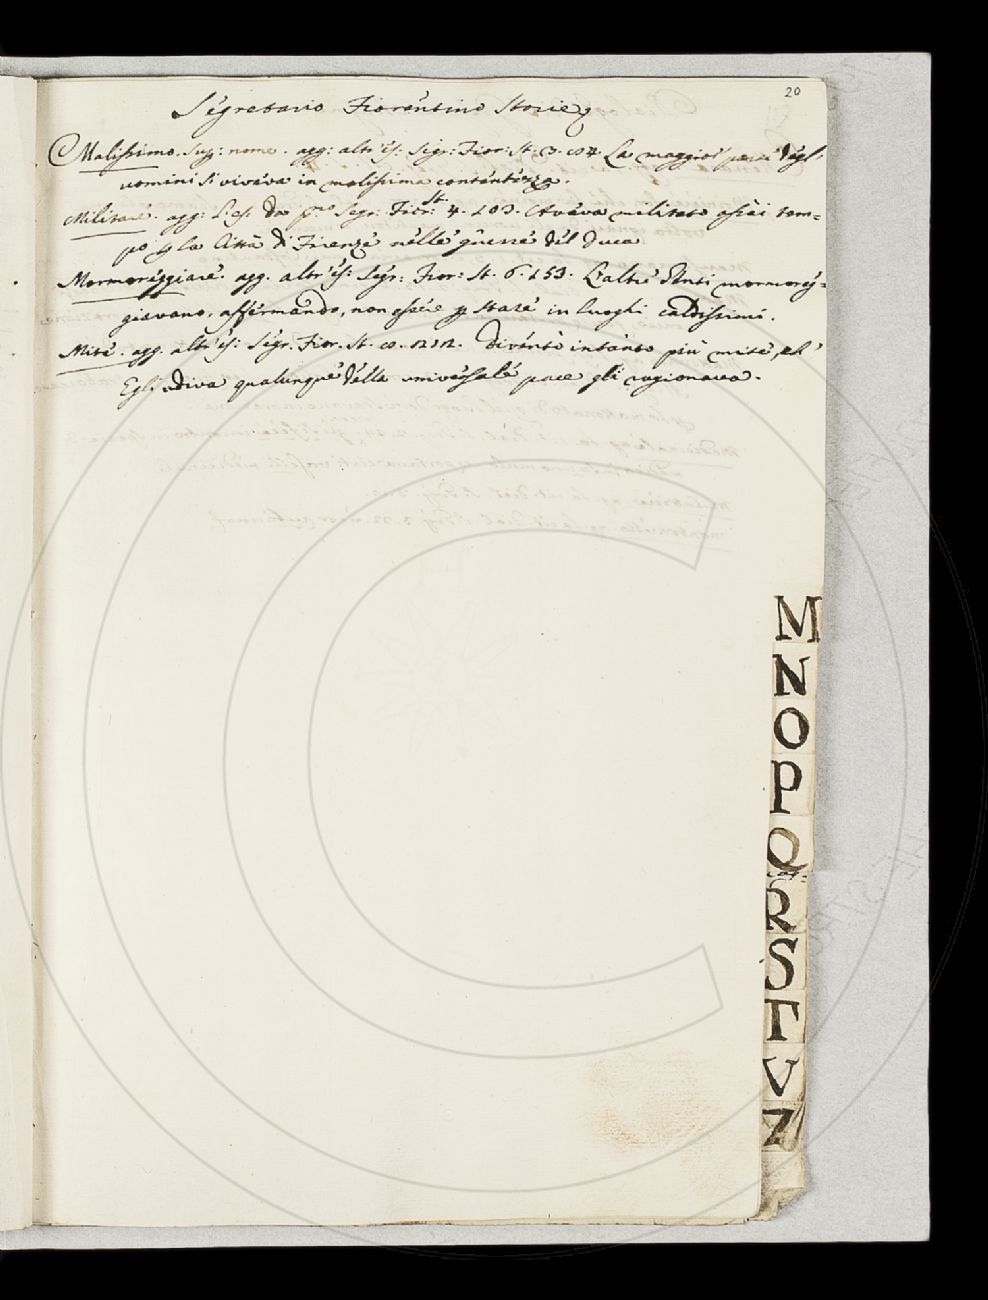 20
Segretario Fiorentino Storie
Malissimo. Sup: nome. agg: altr'es: Segr: Fior: St. 3. La maggior parte degl'
uomini si viveva in malissima contentezza.
Militare. agg: l'es. da Segr: Fior: St. 4. 103. Aveva militato assai tem=
po p la Città di Firenze nelle guerre del Duca
Mormoreggiare. agg. altr'es: Segr: Fior: St. 6. 153. L'altre Genti mormoreg=
giavano, affermando, non essere p stare in luoghi caldissimi.
Mite. agg. altr'es: Segr. Fior. St. Divente intanto più mite, ch'
Egli udiva qualunque delle universale pace gli ragionava.
M
N
O
P
Q
R
S
T
V
Z
C